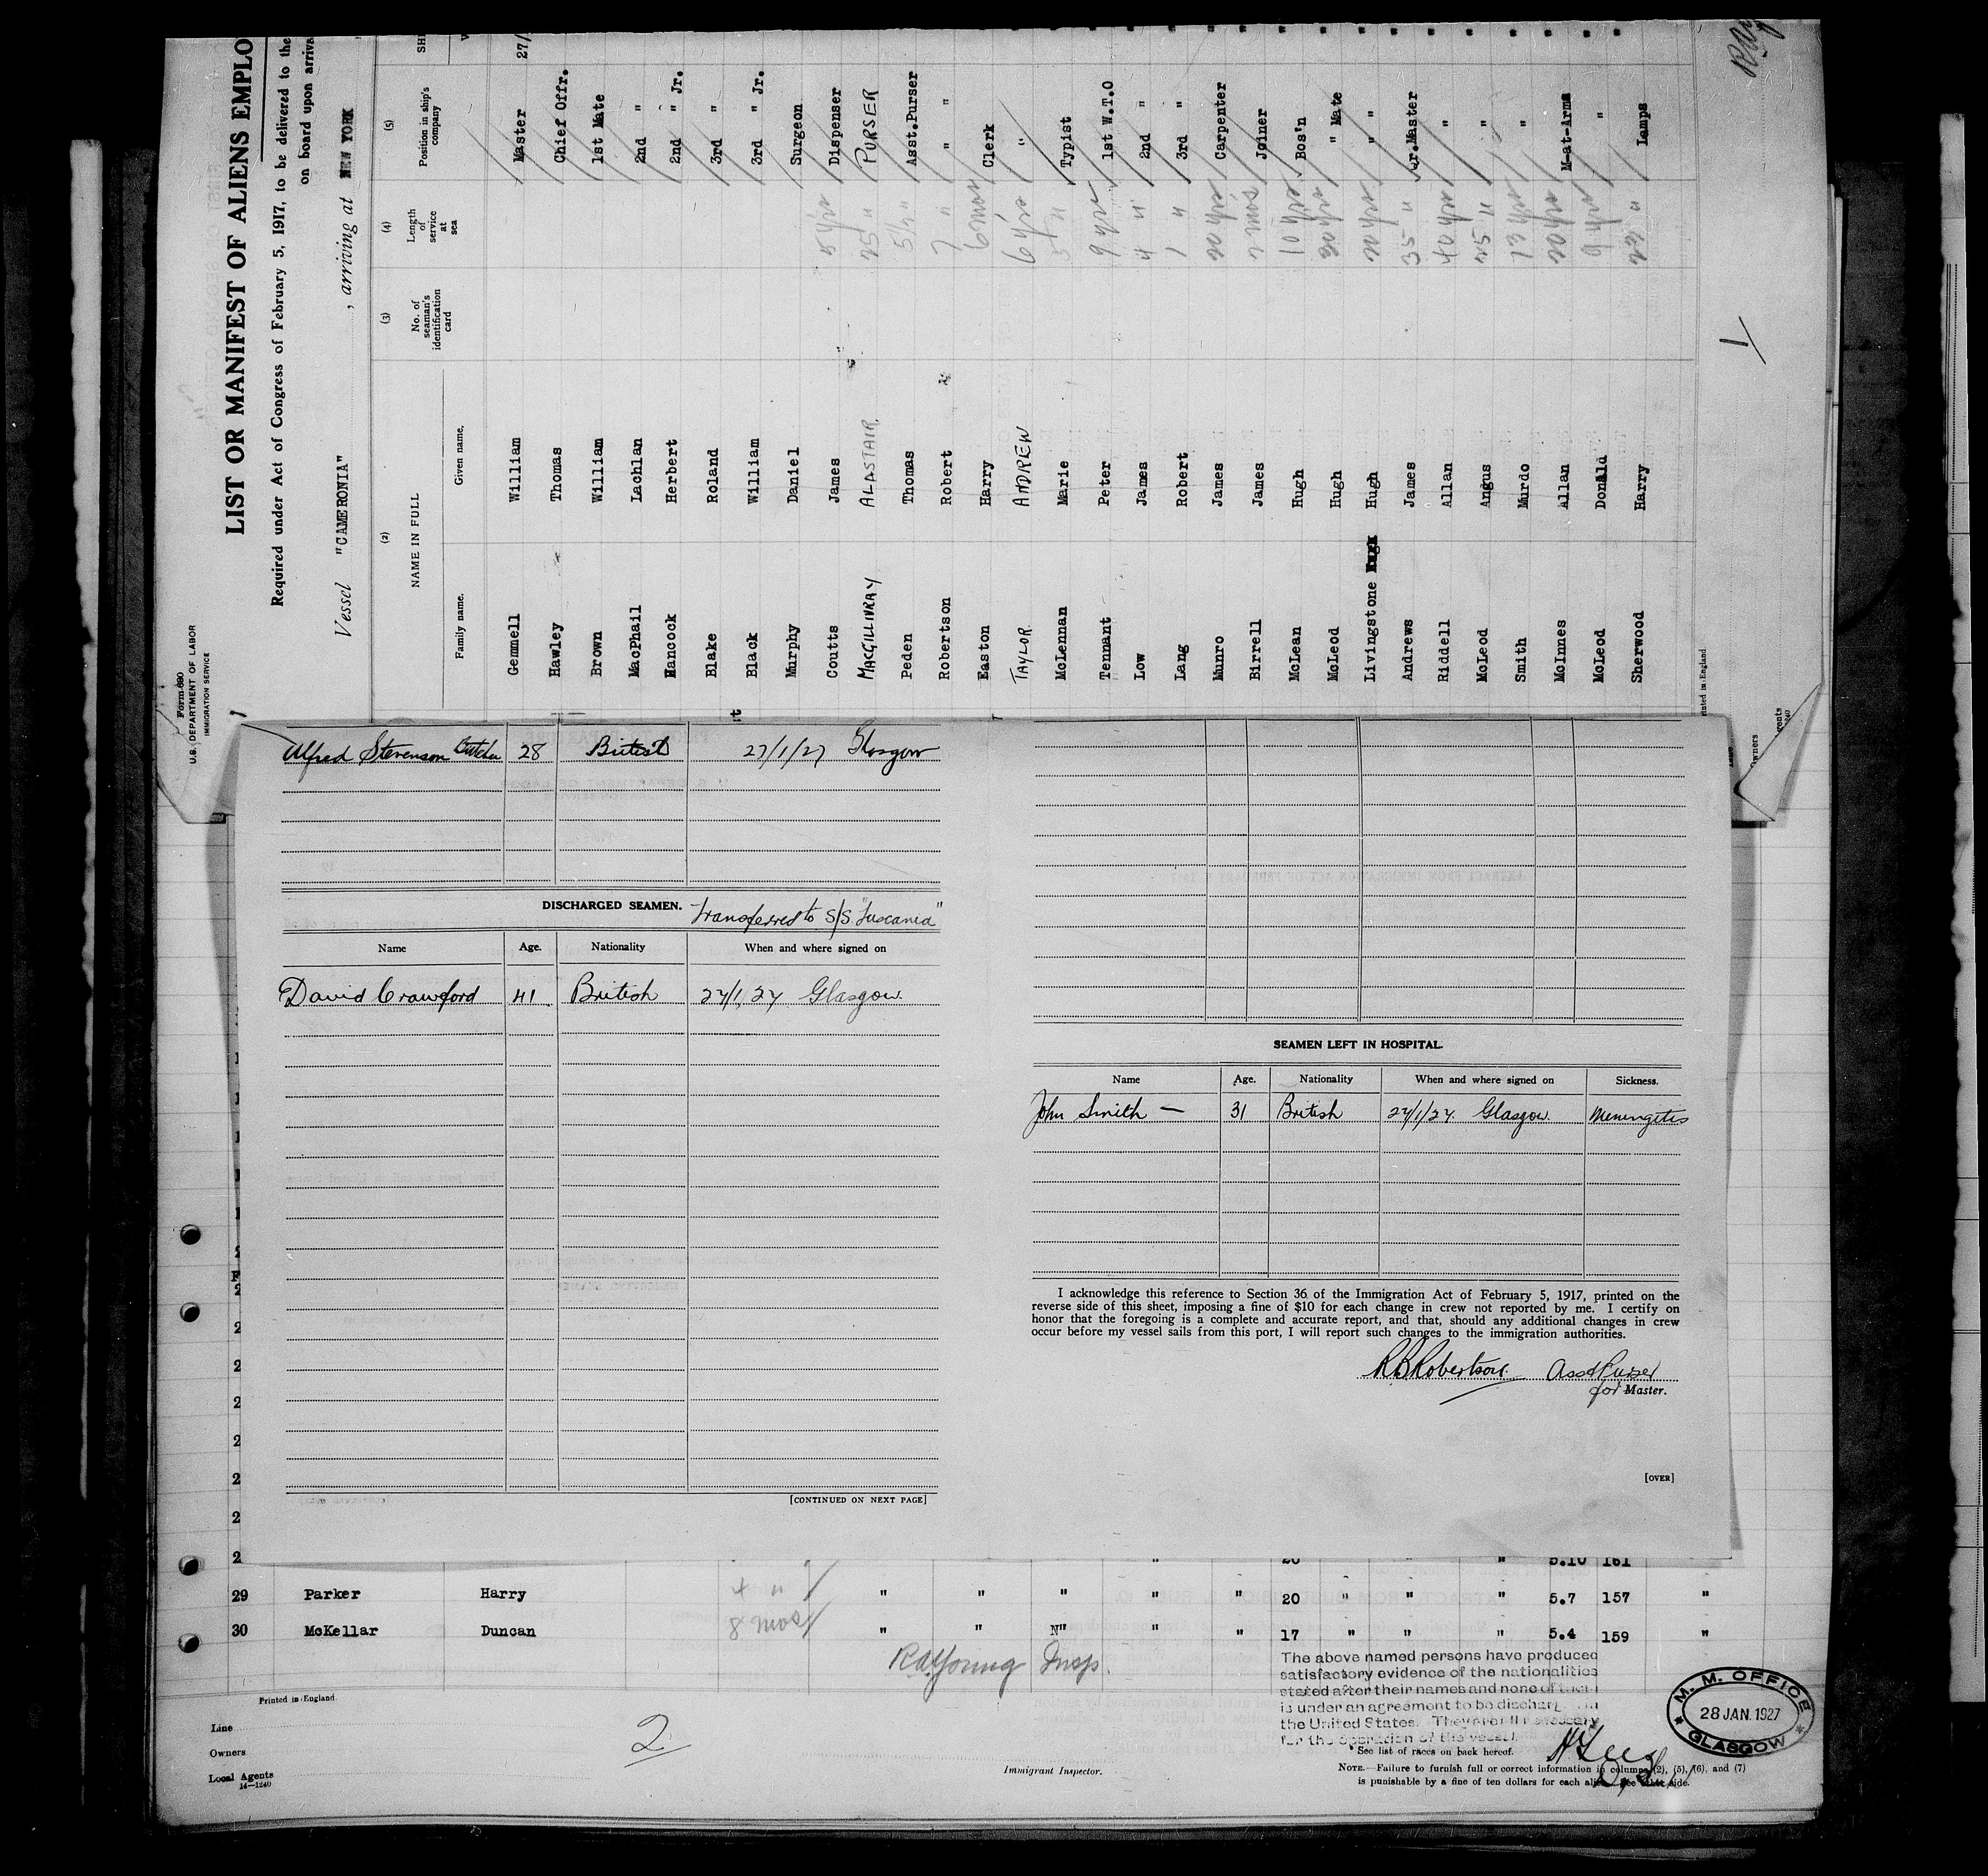 Form 690
U.S. DEPARTMENT OF LABOR
IMMIGRATION SERVICE
LIST OR MANIFEST OF ALIENS EMPLO
Required under Act of Congress of February 5, 1917, to be delivered to the
on board upon arriva
Vessel "CAMERONIA" , arriving at NEW YORK
(2) (3) (4) (5)
NAME IN FULL
Family name. Given name. No. of seaman's identification card Length of service at sea Position in ship's company
Gemmell William Master 27/
Hawley Thomas Chief Offr.
Brown William 1st Mate
MacPhail Lachlan 2nd "
Hancock Herbert 2nd " Jr.
Blake Roland 3rd "
Black William 3rd " Jr.
Murphy Daniel Surgeon
Coutts James 5 yrs Dispenser
MACGILLIVRAY ALASTAIR. 25 " PURSER
Peden Thomas 5½ " Asst.Purser
Robertson Robert 7 " " "
Easton Harry 6 mos Clerk
TAYLOR. ANDREW 6 yrs "
McLennan Marie 5 " Typist
Tennant Peter 9 yrs 1st W.T.O
Low James 4 " 2nd "
Lang Robert 1 " 3rd "
Munro James 20 yrs Carpenter
Birrell James Joiner
McLean Hugh 10 yrs Bos'n
McLeod Hugh 30 yrs " Mate
Livingstone Hugh 20 yrs " "
Andrews James 35 " Qr.Master
Riddell Allan 40 yrs "
McLeod Angus 25 " "
Smith Murdo 13 yrs "
McInnes Allan 20 yrs M-at-Arms
McLeod Donald 9 yrs "
Sherwood Harry 23 " Lamps
1
rinted in England
Alfred Stevenson Butcher 28 British 27/1/27 Glasgow
DISCHARGED SEAMEN. Transferred to S/S. "Tuscania"
Name Age. Nationality When and where signed on
David Crawford 41 British 27/1/27 Glasgow.
[CONTINUED ON NEXT PAGE]
SEAMEN LEFT IN HOSPITAL.
Name Age. Nationality When and where signed on Sickness.
John Smith — 31 British 27/1/27. Glasgow. Meningitis
I acknowledge this reference to Section 36 of the Immigration Act of February 5, 1917, printed on the
reverse side of this sheet, imposing a fine of $10 for each change in crew not reported by me. I certify on
honor that the foregoing is a complete and accurate report, and that, should any additional changes in crew
occur before my vessel sails from this port, I will report such changes to the immigration authorities.
R B Robertson. Asst Purser
for Master.
[OVER]
5.10 161
29 Parker Harry " " " " " " 20 " " " 5.7 157 "
30 McKellar Duncan 8 mos " " N" " " 17 " " " 5.4 159 "
R.A. Young Insp.
The above named persons have produced
satisfactory evidence of the nationalities
stated after their names and none of them
is under an agreement to be discharg in
the United States. They are all necessary
for the operation of the vessel.
Printed in England.
Line
Owners
Local Agents
14—1240
2
Immigrant Inspector.
* See list of races on back hereof.
NOTE.—Failure to furnish full or correct information in columns (2), (5), (6), and (7)
is punishable by a fine of ten dollars for each alien. See other side.
M. M. OFFICE
28 JAN. 1927
GLASGOW